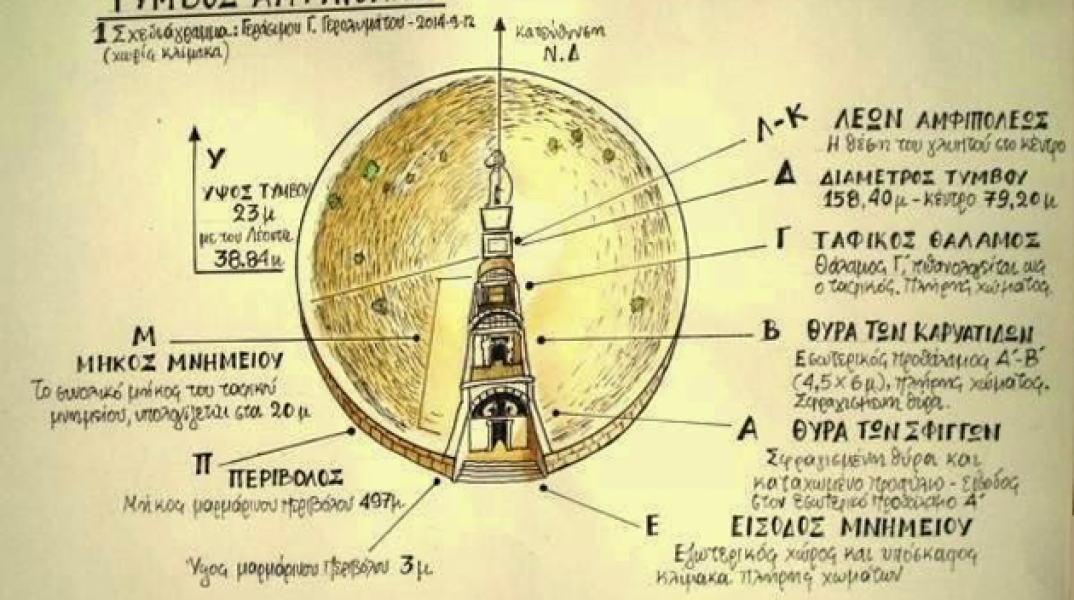 ΤΥΜΒΟΣ
1 Σχεδιάγραμμα: Γεράσιμου Γ. Γερολυμάτου - 2014-9-12
(χωρίς κλίμακα)
κατεύθυνση
Ν.Δ
Υ
ΥΨΟΣ ΤΥΜΒΟΥ
23 μ
με τον Λέοντα
38.84 μ
Λ-Κ ΛΕΩΝ ΑΜΦΙΠΟΛΕΩΣ
Η θέση του γλυπτού στο κέντρο
Δ ΔΙΑΜΕΤΡΟΣ ΤΥΜΒΟΥ
158,40 μ - κέντρο 79,20 μ
Γ ΤΑΦΙΚΟΣ ΘΑΛΑΜΟΣ
Θάλαμος Γ, πιθανολογείται ως
ο ταφικός. Πλήρης χώματος.
Β ΘΥΡΑ ΤΩΝ ΚΑΡΥΑΤΙΔΩΝ
Εσωτερικός προθάλαμος Α΄-Β΄
(4,5 × 6 μ), πλήρης χώματος.
Σφραγισμένη θύρα.
Α ΘΥΡΑ ΤΩΝ ΣΦΙΓΓΩΝ
Σφραγισμένη θύρα και
καταχωμένο προπύλαιο - είσοδος
στον εσωτερικό προθάλαμο Α΄
Ε ΕΙΣΟΔΟΣ ΜΝΗΜΕΙΟΥ
Εξωτερικός χώρος και υπόσκαφος
κλίμακα πλήρης χωμάτων
Μ
ΜΗΚΟΣ ΜΝΗΜΕΙΟΥ
Το συνολικό μήκος του ταφικού
μνημείου, υπολογίζεται στα 20 μ
Π
ΠΕΡΙΒΟΛΟΣ
Μήκος μαρμάρινου περιβόλου 497 μ.
Ύψος μαρμάρινου περιβόλου 3 μ.